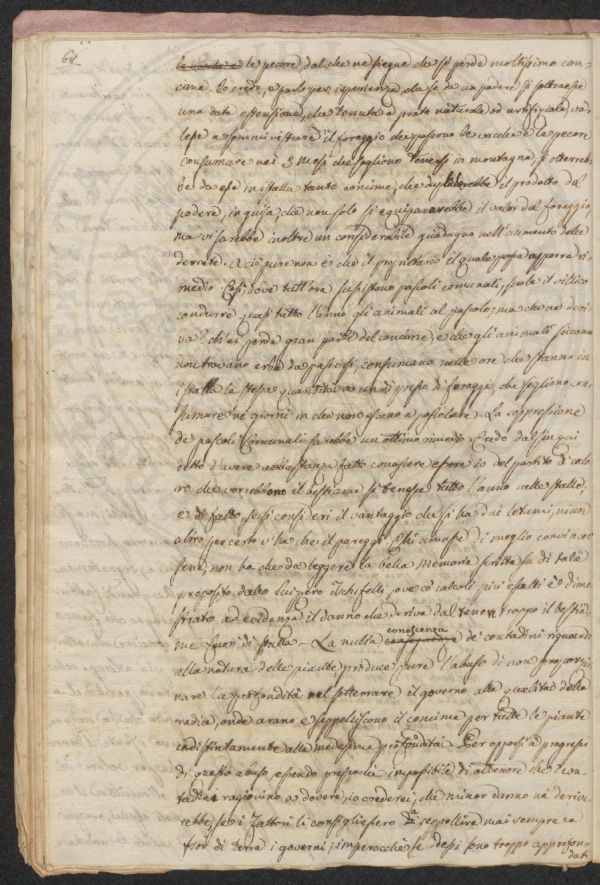 68
le pecore, dal che ne siegue che si perde moltissimo con-
cime. Io credo, e parlo per isperienza, che se da un podere si sottraesse
una data estensione, che tenuta a prato naturale od artifiziale, va-
lesse a somministrare il foraggio che possono le vacche e le pecore
consumare nei 5 mesi che sogliono tenersi in montagna, si otterreb-
be da esse in istalla tanto concime, che il prodotto del
podere, in guisa, che non solo si equiparerebbe il valor del foraggio,
ma vi sarebbe inoltre un considerabile guadagno nell'aumento delle
derrate. A ciò pure non è che il proprietario il quale possa apporre ri-
medio. Così dove tutt'ora sussistono pascoli comunali, suole il villico
condurre quasi tutto l'anno gli animali al pascolo; ma che ne deri-
va? ch'ei perde gran parte del concime, e che gli animali siccome
non trovano erba da pascersi, consumano nelle ore che stanno in
istalla la stessa quantità a un di presso di foraggio, che sogliono con-
sumare ne' giorni in che non escono a pascolare. La soppressione
de' pascoli Comunali sarebbe un ottimo rimedio. Credo dal sin qui
detto d'avere abbastanza fatto conoscere essere io del partito di colo-
ro che vorrebbono il bestiame si tenesse tutto l'anno nelle stalle,
e di fatto, se si consideri il vantaggio che si ha dai letami, niun
altro per certo v'ha che il pareggi. Chi amasse di meglio convincer-
sene, non ha che da leggere la bella memoria scritta su di tale
proposito dallo Svizzero Tschifelli, ove co' calcoli più esatti è dimo-
strato ad evidenza il danno che deriva dal tener troppo il bestia-
me fuori di stalla. - La nulla conoscenza de' contadini riguardo
alla natura delle piante, produce pure l'abuso di non proporzio-
nare la profondità nel sotterrare il governo alla qualità della
radice, onde arano e seppelliscono il concime per tutte le piante
indistintamente alla medesima profondità. Per opporsi a' progressi
di questo abuso, essendo pressochè impossibile di ottenere che i con-
tadini ragionino a dovere, io crederei, che minor danno ne derive-
rebbe, se i Fattori li consigliassero a seppellire mai sempre a
fior di terra i governi; imperocchè se dessi sono troppo approfon-
dati